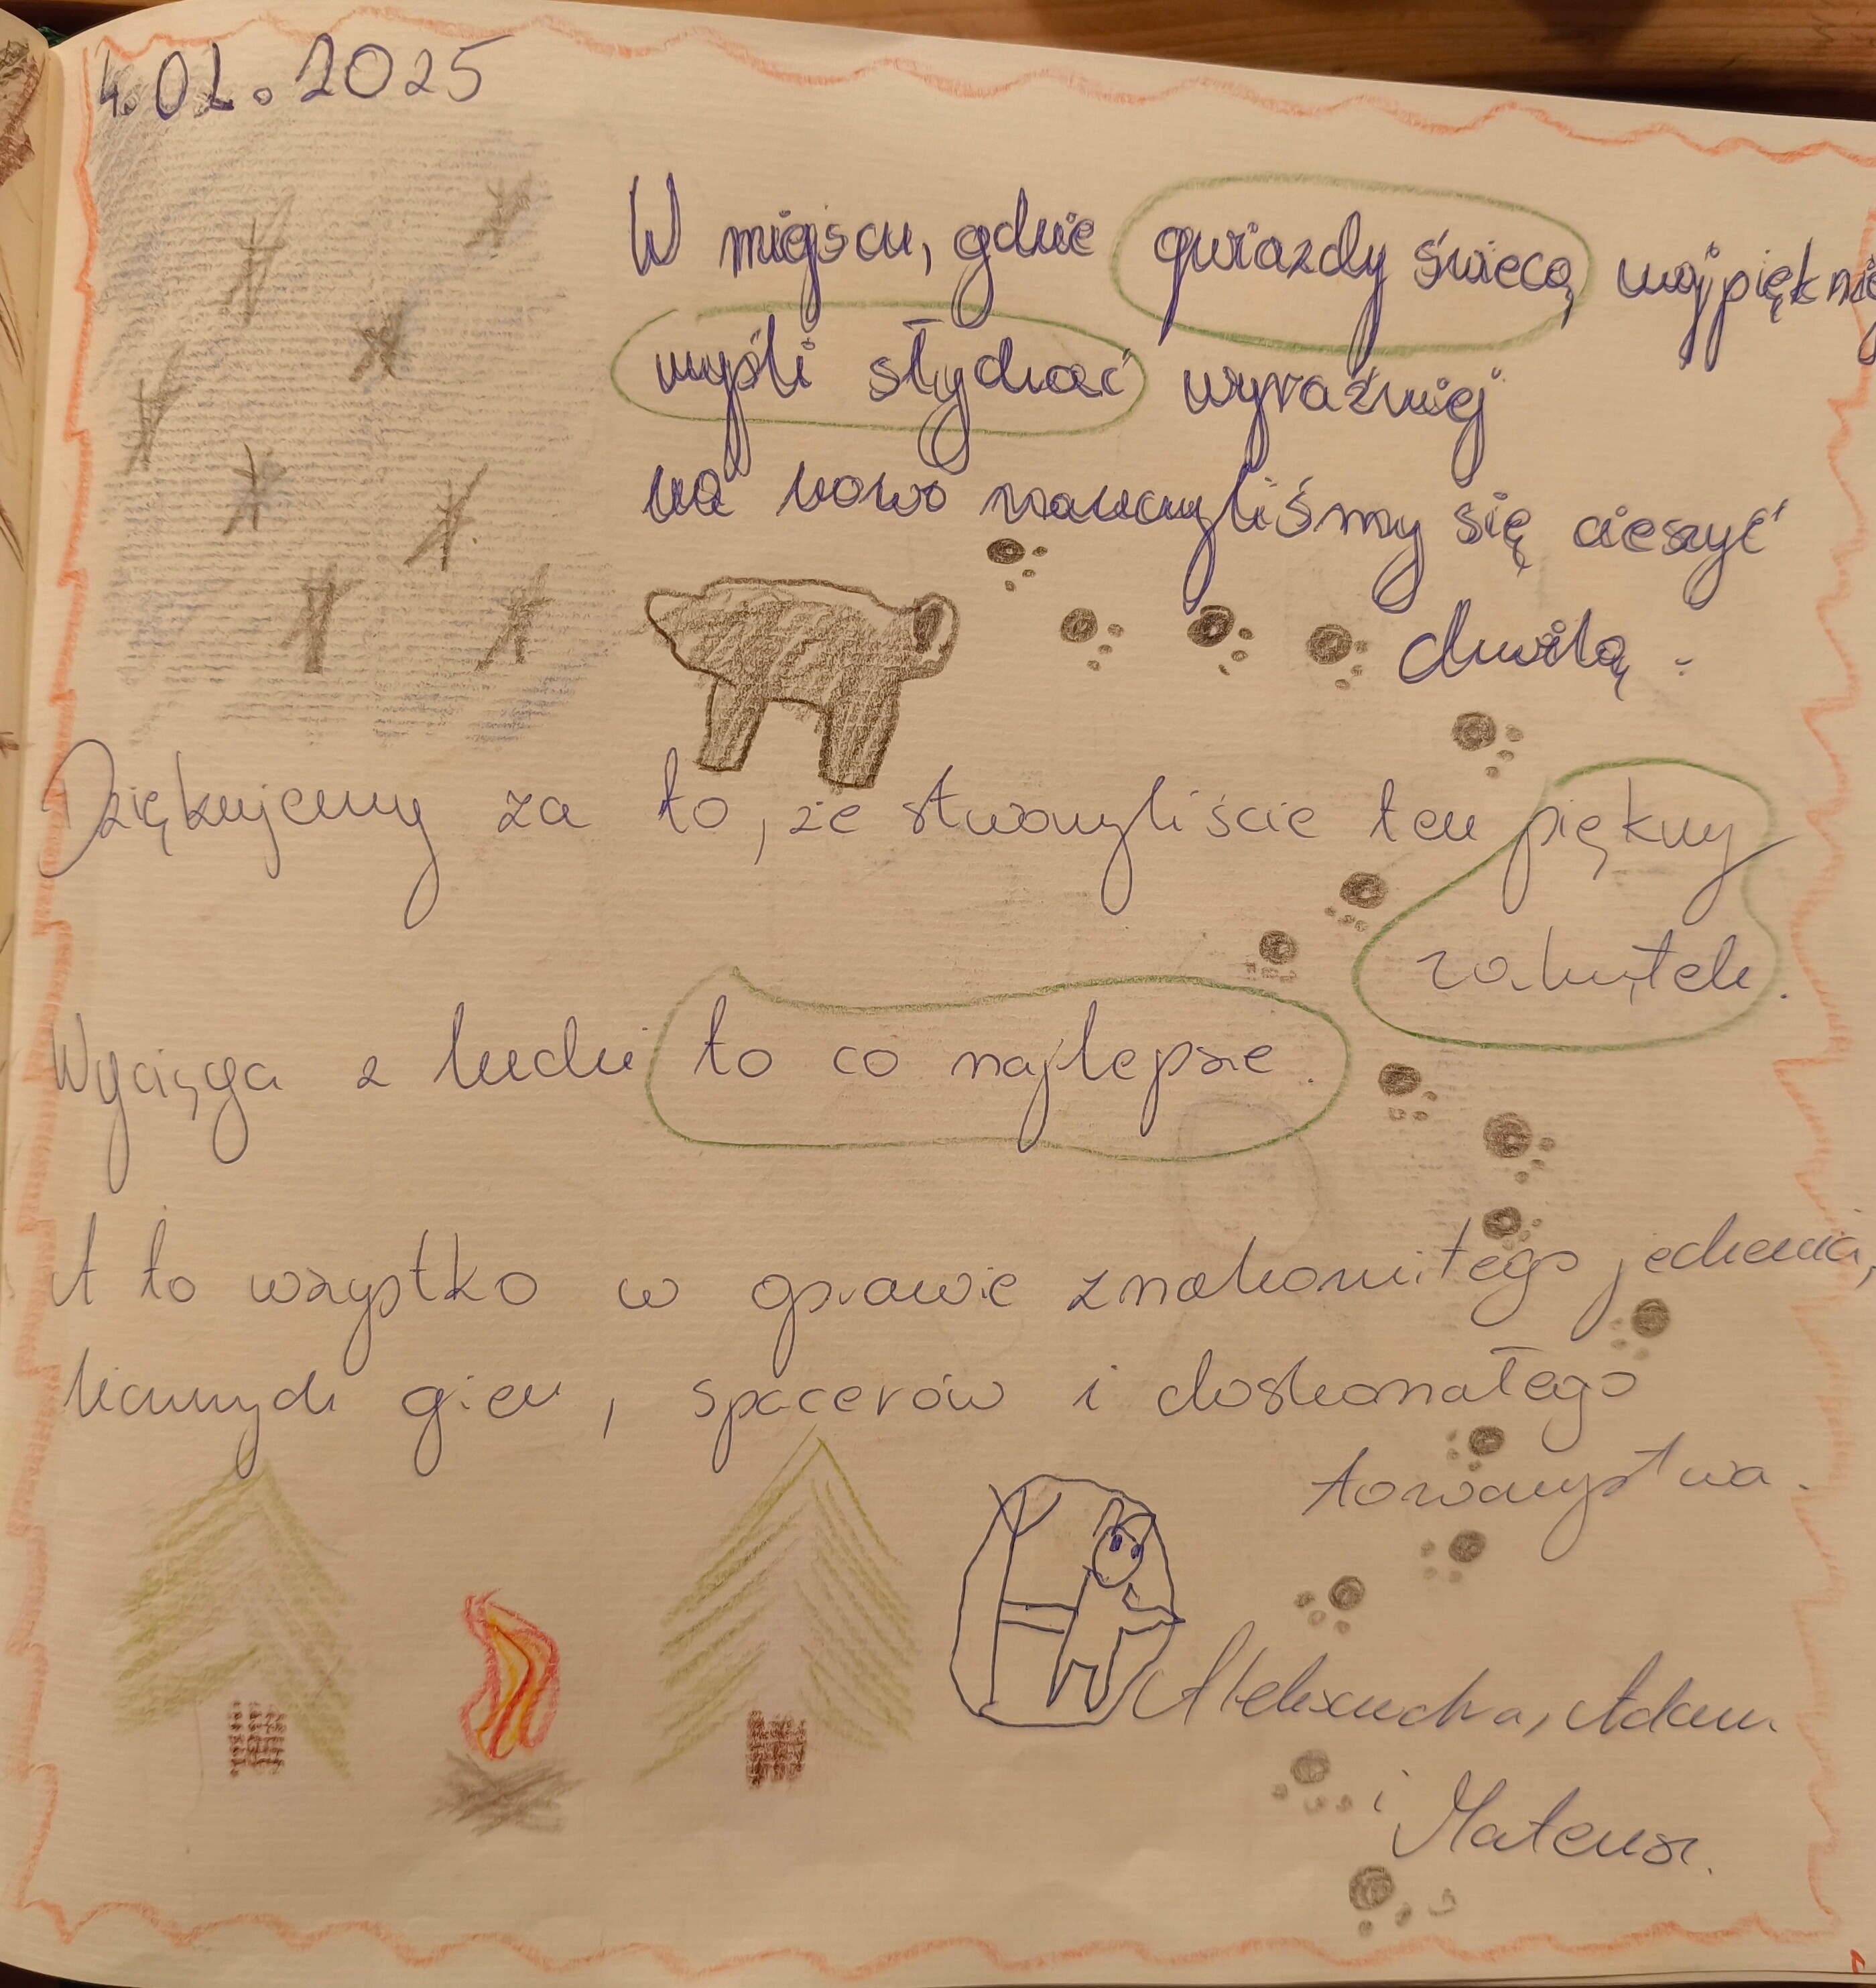 4.02.2025
W miejscu, gdzie gwiazdy świecą najpiękniej
myśli słychać wyraźniej
na nowo nauczyliśmy się cieszyć
chwilą.
Dziękujemy za to, że stworzyliście ten piękny
zakątek.
Wyciąga z ludzi to co najlepsze.
A to wszystko w oprawie znakomitego jedzenia,
licznych gier, spacerów i doskonałego
towarzystwa.
Aleksandra, Adam
i Mateusz.